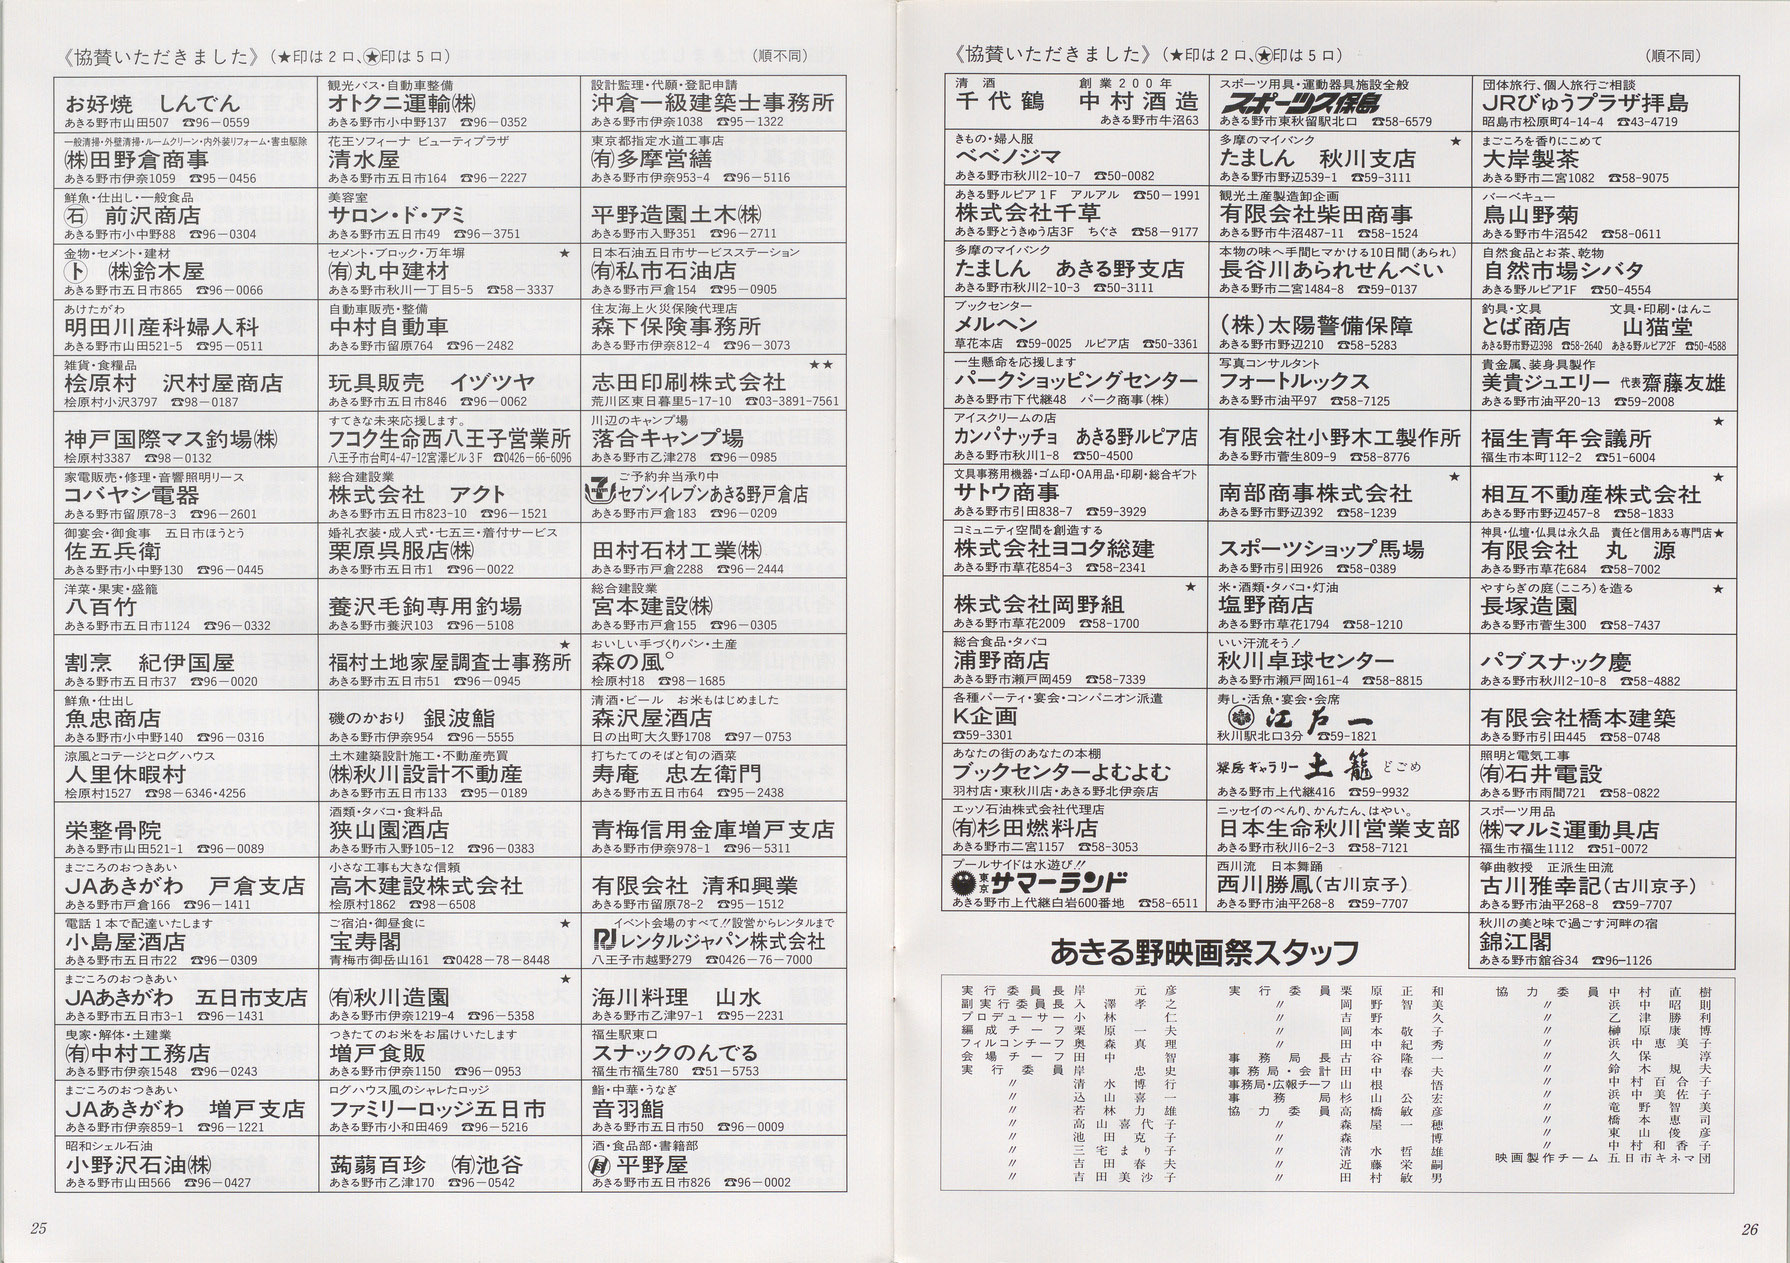 《協賛いただきました》(★印は2口、★印は5口) (順不同)
お好焼 しんでん
あきる野市山田507 ☎96−0559
観光バス・自動車整備
オトクニ運輸㈱
あきる野市小中野137 ☎96−0352
設計監理・代願・登記申請
沖倉一級建築士事務所
あきる野市伊奈1038 ☎95−1322
一般清掃・外壁清掃・ルームクリーン・内外装リフォーム・害虫駆除
㈱田野倉商事
あきる野市伊奈1059 ☎95−0456
花王ソフィーナ ビューティプラザ
清水屋
あきる野市五日市164 ☎96−2227
東京都指定水道工事店
㈲多摩営繕
あきる野市伊奈953-4 ☎96−5116
鮮魚・仕出し・一般食品
石 前沢商店
あきる野市小中野88 ☎96−0304
美容室
サロン・ド・アミ
あきる野市五日市49 ☎96−3751
平野造園土木㈱
あきる野市入野351 ☎96−2711
金物・セメント・建材
ト ㈱鈴木屋
あきる野市五日市865 ☎96−0066
セメント・ブロック・万年塀 ★
㈲丸中建材
あきる野市秋川一丁目5-5 ☎58−3337
日本石油五日市サービスステーション
㈲私市石油店
あきる野市戸倉154 ☎95−0905
あけたがわ
明田川産科婦人科
あきる野市山田521-5 ☎95−0511
自動車販売・整備
中村自動車
あきる野市留原764 ☎96−2482
住友海上火災保険代理店
森下保険事務所
あきる野市伊奈812-4 ☎96−3073
雑貨・食糧品
桧原村 沢村屋商店
桧原村小沢3797 ☎98−0187
玩具販売 イヅツヤ
あきる野市五日市846 ☎96−0062
★★
志田印刷株式会社
荒川区東日暮里5-17-10 ☎03-3891-7561
神戸国際マス釣場㈱
桧原村3387 ☎98−0132
すてきな未来応援します。
フコク生命西八王子営業所
八王子市台町4-47-12宮澤ビル3F ☎0426−66−6096
川辺のキャンプ場
落合キャンプ場
あきる野市乙津278 ☎96−0985
家電販売・修理・音響照明リース
コバヤシ電器
あきる野市留原78-3 ☎96−2601
総合建設業
株式会社 アクト
あきる野市五日市823-10 ☎96−1521
ご予約弁当承り中
セブンイレブンあきる野戸倉店
あきる野市戸倉183 ☎96−0209
御宴会・御食事 五日市ほうとう
佐五兵衛
あきる野市小中野130 ☎96−0445
婚礼衣装・成人式・七五三・着付サービス
栗原呉服店㈱
あきる野市五日市1 ☎96−0022
田村石材工業㈱
あきる野市戸倉2288 ☎96−2444
洋菜・果実・盛籠
八百竹
あきる野市五日市1124 ☎96−0332
養沢毛鉤専用釣場
あきる野市養沢103 ☎96−5108
総合建設業
宮本建設㈱
あきる野市戸倉155 ☎96−0305
割烹 紀伊国屋
あきる野市五日市37 ☎96−0020
★
福村土地家屋調査士事務所
あきる野市五日市51 ☎96−0945
おいしい手づくりパン・土産
森の風°
桧原村18 ☎98−1685
鮮魚・仕出し
魚忠商店
あきる野市小中野140 ☎96−0316
磯のかおり 銀波鮨
あきる野市伊奈954 ☎96−5555
清酒・ビール お米もはじめました
森沢屋酒店
日の出町大久野1708 ☎97−0753
涼風とコテージとログハウス
人里休暇村
桧原村1527 ☎98−6346・4256
土木建築設計施工・不動産売買
㈱秋川設計不動産
あきる野市五日市133 ☎95−0189
打ちたてのそばと旬の酒菜
寿庵 忠左衛門
あきる野市五日市64 ☎95−2438
栄整骨院
あきる野市山田521-1 ☎96−0089
酒類・タバコ・食料品
狭山園酒店
あきる野市入野105-12 ☎96−0383
青梅信用金庫増戸支店
あきる野市伊奈978-1 ☎96−5311
まごころのおつきあい
JAあきがわ 戸倉支店
あきる野市戸倉166 ☎96−1411
小さな工事も大きな信頼
高木建設株式会社
桧原村1862 ☎98−6508
有限会社 清和興業
あきる野市留原78-2 ☎95−1512
電話1本で配達いたします
小島屋酒店
あきる野市五日市22 ☎96−0309
ご宿泊・御昼食に ★
宝寿閣
青梅市御岳山161 ☎0428−78−8448
イベント会場のすべて!!設営からレンタルまで
レンタルジャパン株式会社
八王子市越野279 ☎0426−76−7000
まごころのおつきあい
JAあきがわ 五日市支店
あきる野市五日市3-1 ☎96−1431
★
㈲秋川造園
あきる野市伊奈1219-4 ☎96−5358
海川料理 山水
あきる野市乙津97-1 ☎95−2231
曳家・解体・土建業
㈲中村工務店
あきる野市伊奈1548 ☎96−0243
つきたてのお米をお届けいたします
増戸食販
あきる野市伊奈1150 ☎96−0953
福生駅東口
スナックのんでる
福生市福生780 ☎51−5753
まごころのおつきあい
JAあきがわ 増戸支店
あきる野市伊奈859-1 ☎96−1221
ログハウス風のシャレたロッジ
ファミリーロッジ五日市
あきる野市小和田469 ☎96−5216
鮨・中華・うなぎ
音羽鮨
あきる野市五日市50 ☎96−0009
昭和シェル石油
小野沢石油㈱
あきる野市山田566 ☎96−0427
蒟蒻百珍 ㈲池谷
あきる野市乙津170 ☎96−0542
酒・食品部・書籍部
平野屋
あきる野市五日市826 ☎96−0002
25
《協賛いただきました》(★印は2口、★印は5口) (順不同)
清酒 創業200年
千代鶴 中村酒造
あきる野市牛沼63
スポーツ用具・運動器具施設全般
スポーツス保島
あきる野市東秋留駅北口 ☎58−6579
団体旅行、個人旅行ご相談
JRびゅうプラザ拝島
昭島市松原町4-14-4 ☎43-4719
きもの・婦人服
ベベノジマ
あきる野市秋川2-10-7 ☎50-0082
多摩のマイバンク ★
たましん 秋川支店
あきる野市野辺539-1 ☎59-3111
まごころを香りにこめて
大岸製茶
あきる野市二宮1082 ☎58−9075
あきる野ルピア1F アルアル ☎50−1991
株式会社千草
あきる野とうきゅう店3F ちぐさ ☎58−9177
観光土産製造卸企画
有限会社柴田商事
あきる野市牛沼487-11 ☎58−1524
バーベキュー
鳥山野菊
あきる野市牛沼542 ☎58−0611
多摩のマイバンク
たましん あきる野支店
あきる野市秋川2-10-3 ☎50-3111
本物の味へ手間ヒマかける10日間(あられ)
長谷川あられせんべい
あきる野市二宮1484-8 ☎59-0137
自然食品とお茶、乾物
自然市場シバタ
あきる野ルピア1F ☎50-4554
ブックセンター
メルヘン
草花本店 ☎59-0025 ルピア店 ☎50-3361
(株)太陽警備保障
あきる野市野辺210 ☎58−5283
釣具・文具 文具・印刷・はんこ
とば商店 山猫堂
あきる野市野辺398 ☎58-2640 あきる野ルピア2F ☎50-4588
一生懸命を応援します
パークショッピングセンター
あきる野市下代継48 パーク商事(株)
写真コンサルタント
フォートルックス
あきる野市油平97 ☎58−7125
貴金属、装身具製作
美貴ジュエリー 代表齋藤友雄
あきる野市油平20-13 ☎59−2008
アイスクリームの店
カンパナッチョ あきる野ルピア店
あきる野市秋川1-8 ☎50-4500
有限会社小野木工製作所
あきる野市菅生809-9 ☎58−8776
★
福生青年会議所
福生市本町112-2 ☎51-6004
文具事務用機器・ゴム印・OA用品・印刷・総合ギフト
サトウ商事
あきる野市引田838-7 ☎59-3929
★
南部商事株式会社
あきる野市野辺392 ☎58−1239
★
相互不動産株式会社
あきる野市野辺457-8 ☎58−1833
コミュニティ空間を創造する
株式会社ヨコタ総建
あきる野市草花854-3 ☎58−2341
スポーツショップ馬場
あきる野市引田926 ☎58−0389
神具・仏壇・仏具は永久品 責任と信用ある専門店★
有限会社 丸源
あきる野市草花684 ☎58−7002
★
株式会社岡野組
あきる野市草花2009 ☎58−1700
米・酒類・タバコ・灯油
塩野商店
あきる野市草花1794 ☎58−1210
やすらぎの庭(こころ)を造る ★
長塚造園
あきる野市菅生300 ☎58−7437
総合食品・タバコ
浦野商店
あきる野市瀬戸岡459 ☎58−7339
いい汗流そう!
秋川卓球センター
あきる野市瀬戸岡161-4 ☎58−8815
パブスナック慶
あきる野市秋川2-10-8 ☎58−4882
各種パーティ・宴会・コンパニオン派遣
K企画
☎59-3301
寿し・活魚・宴会・会席
江戸一
秋川駅北口3分 ☎59−1821
有限会社橋本建築
あきる野市引田445 ☎58−0748
あなたの街のあなたの本棚
ブックセンターよむよむ
羽村店・東秋川店・あきる野北伊奈店
ギャラリー 土籠 どごめ
あきる野市上代継416 ☎59−9932
照明と電気工事
㈲石井電設
あきる野市雨間721 ☎58−0822
エッソ石油株式会社代理店
㈲杉田燃料店
あきる野市二宮1157 ☎58−3053
ニッセイのべんり、かんたん、はやい。
日本生命秋川営業支部
あきる野市秋川6-2-3 ☎58−7121
スポーツ用品
㈱マルミ運動具店
福生市福生1112 ☎51-0072
プールサイドは水遊び!!
東京サマーランド
あきる野市上代継白岩600番地 ☎58-6511
西川流 日本舞踊
西川勝鳳(古川京子)
あきる野市油平268-8 ☎59−7707
箏曲教授 正派生田流
古川雅幸記(古川京子)
あきる野市油平268-8 ☎59−7707
秋川の美と味で過ごす河畔の宿
錦江閣
あきる野市舘谷34 ☎96−1126
あきる野映画祭スタッフ
実行委員長 岸元彦
副実行委員長 入澤孝之
プロデューサー 小林仁
編成チーフ 栗原一夫
フィルコンチーフ 奥森真理
会場チーフ 田中智
実行委員 岸忠史
〃 清水博行
〃 込山喜一
〃 若林力雄
〃 高山喜代子
〃 池田克子
〃 三宅まり子
〃 吉田春夫
〃 吉田美沙子
実行委員 栗原正和
〃 岡野智美
〃 吉野久
〃 岡本敬子
〃 田中紀秀
事務局長 古谷隆一
事務局・会計 田中春夫
事務局・広報チーフ 山根悟
事務局 杉山公宏
協力委員 高橋敏彦
〃 森屋一穂
〃 森博
〃 清水哲雄
〃 近藤栄嗣
〃 田村敏男
協力委員 中村直樹
〃 浜中昭則
〃 乙津勝利
〃 榊原康博
〃 浜中恵美子
〃 久保淳
〃 鈴木規夫
〃 中村百合子
〃 浜中美佐子
〃 竜野智美
〃 橋本恵司
〃 東山俊彦
〃 中村和香子
映画製作チーム 五日市キネマ団
26